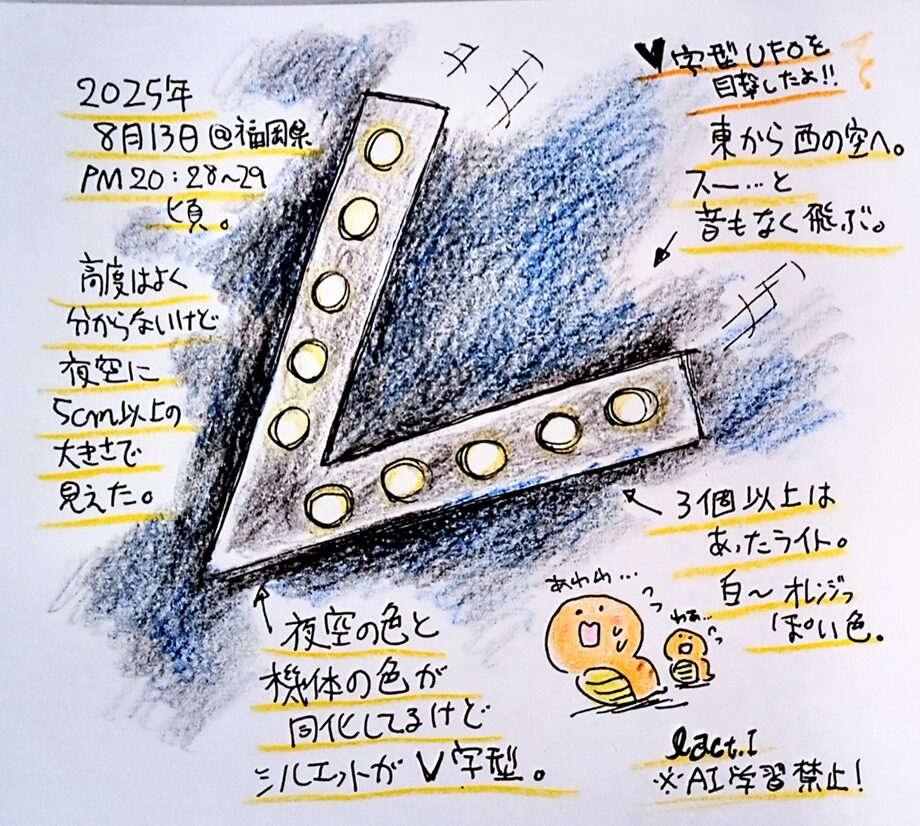 V字型UFOを
目撃したよ!!
2025年
8月13日@福岡県
PM20:28〜29
頃。
東から西の空へ。
スー…と
音もなく飛ぶ。
高度はよく
分からないけど
夜空に
5cm以上の
大きさで
見えた。
3個以上は
あったライト。
白〜オレンジっ
ぽい色。
あわわ…
わぁ…
夜空の色と
機体の色が
同化してるけど
シルエットがV字型。
lact.I
※AI学習禁止!